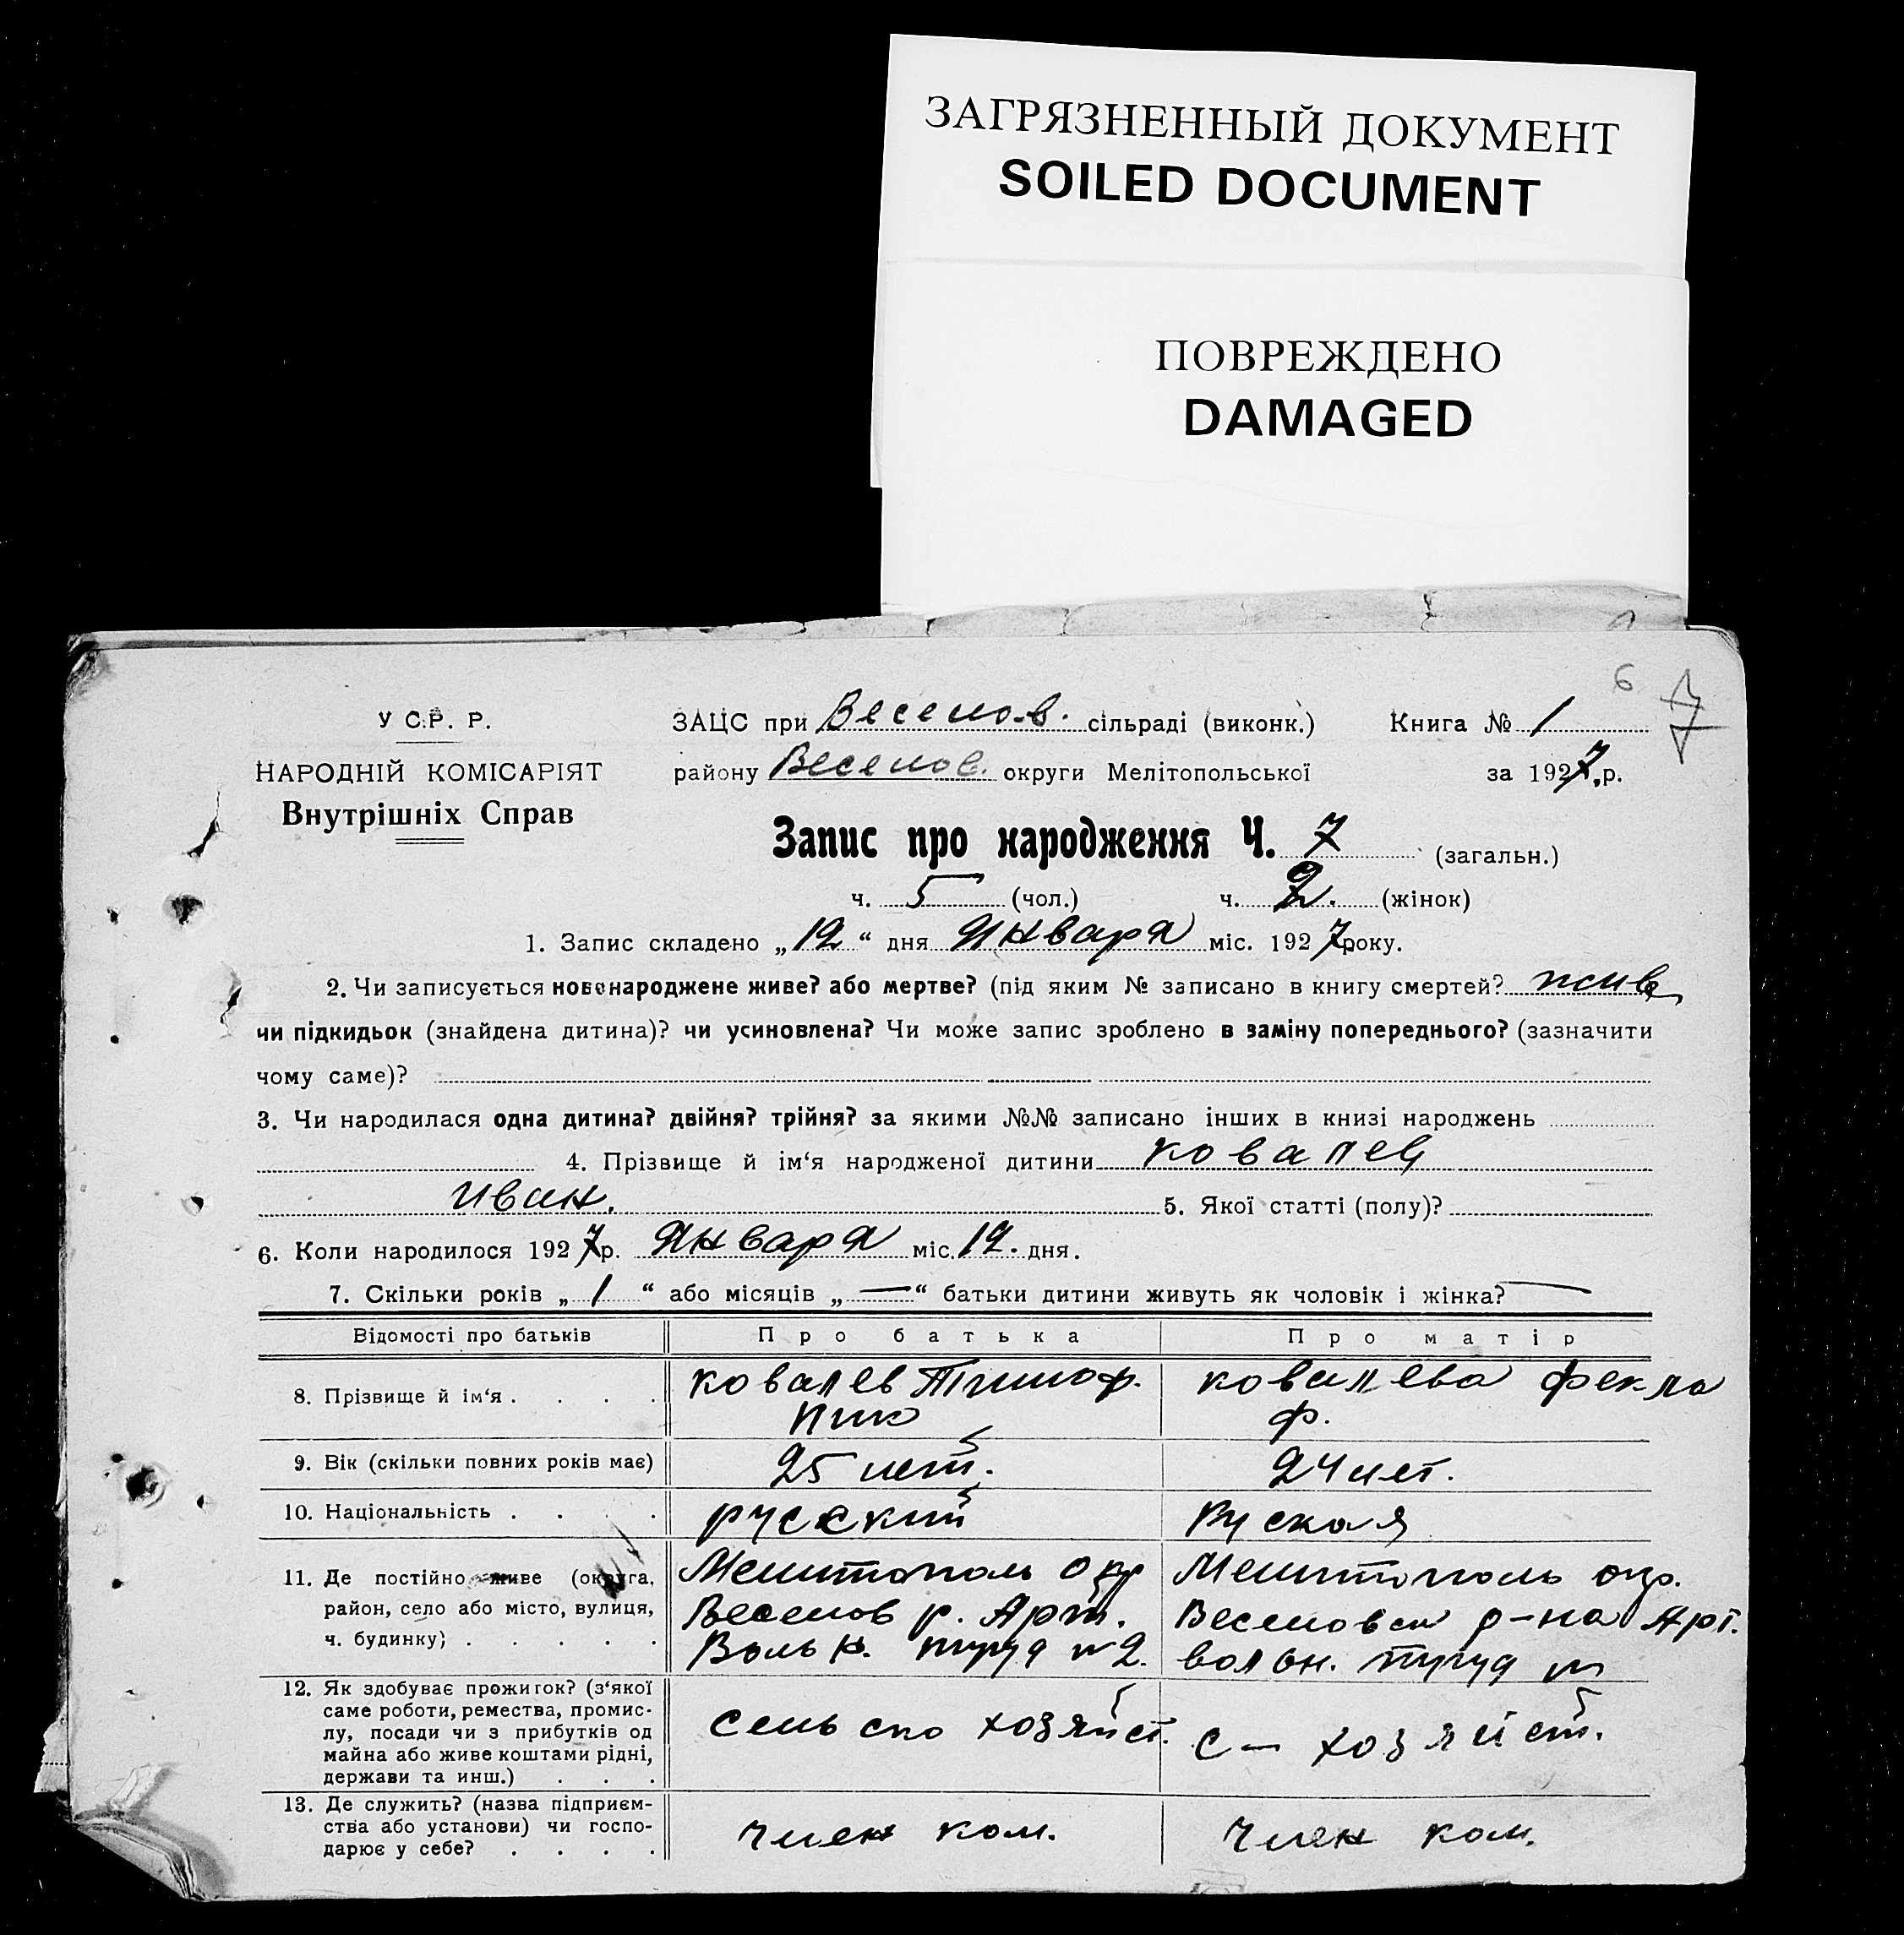 ЗАГРЯЗНЕННЫЙ ДОКУМЕНТ
SOILED DOCUMENT
ПОВРЕЖДЕНО
DAMAGED
6 7
У С.Р. Р. ЗАЦС при Веселов. сільраді (виконк.) Книга № 1
НАРОДНІЙ КОМІСАРІЯТ району Веселов. округи Мелітопольської за 1927 р.
Внутрішніх Справ
Запис про народження Ч. 7 (загальн.)
ч. 5 (чол.) ч. 2. (жінок)
1. Запис складено „12“ дня Января міс. 1927 року.
2. Чи записується новонароджене живе? або мертве? (під яким № записано в книгу смертей?
чи підкидьок (знайдена дитина)? чи усиновлена? Чи може запис зроблено в заміну попереднього? (зазначити
чому саме)?
3. Чи народилася одна дитина? двійня? трійня? за якими №№ записано інших в книзі народжень
4. Прізвище й ім‘я народженої дитини Ковалев
Иван. 5. Якої статті (полу)?
6. Коли народилося 1927 р. Января міс. 12. дня.
7. Скільки років „1“ або місяців „—“ батьки дитини живуть як чоловік і жінка? —
Відомості про батьків Про батька Про матір
8. Прізвище й ім‘я . . . . Ковалев Тимоф. Ковалева Фекла
Ф.
9. Вік (скільки повних років має) 25 лет. 24 лет.
10. Національність . . . . русский Руская
11. Де постійно живе (округа, Мелитополь окр Мелитополь окр.
район, село або місто, вулиця, Веселов р. Арт. Веселовск р-на Арт.
ч. будинку) . . . . . Вольн. труд №2. вольн. труд
12. Як здобуває прожиток? (з‘якої
саме роботи, ремества, промис-
лу, посади чи з прибутків од сельско хозяйст. с— хозяйст.
майна або живе коштами рідні,
держави та инш.) . . .
13. Де служить? (назва підприєм-
ства або установи) чи госпо- член ком. член ком.
дарює у себе? . . . .